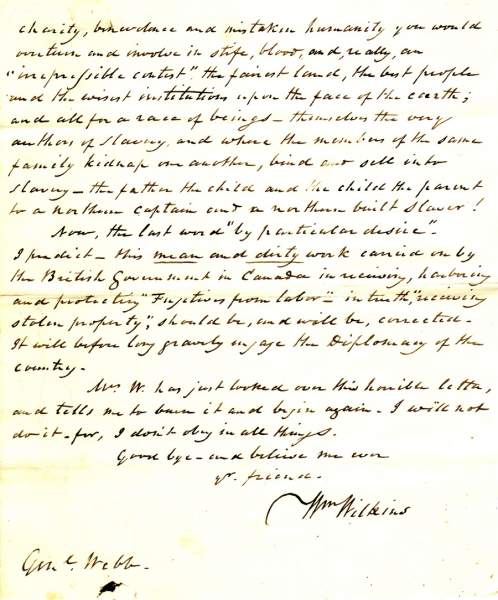 charity, benevolence and mistaken humanity you would
overturn and involve in stife, blood, and, really, an
"irrepressible contest" the fairest land, the best people
and the wisest institutions upon the face of the earth;
and all for a race of beings – themselves the very
authors of slavery, and where the members of the same
family kidnap one another, bind and sell into
slavery – the father the child and the child the parent
to a northern captain and a northern built slaver!
Now, the last word "by particular desire" –
I predict – this mean and dirty work carried on by
the British Government in Canada in receiving, harboring
and protecting "Fugitives from labor" – in truth, "receiving
stolen property", should be, and will be, corrected –
It will before long gravely engage the Diplomacy of the
country –
Mrs W. has just looked over this horrible letter,
and tells me to burn it and begin again – I will not
do it – for, I don't obey in all things.
Good bye – and believe me ever
yr. friend.
Wm Wilkins
Genl. Webb.